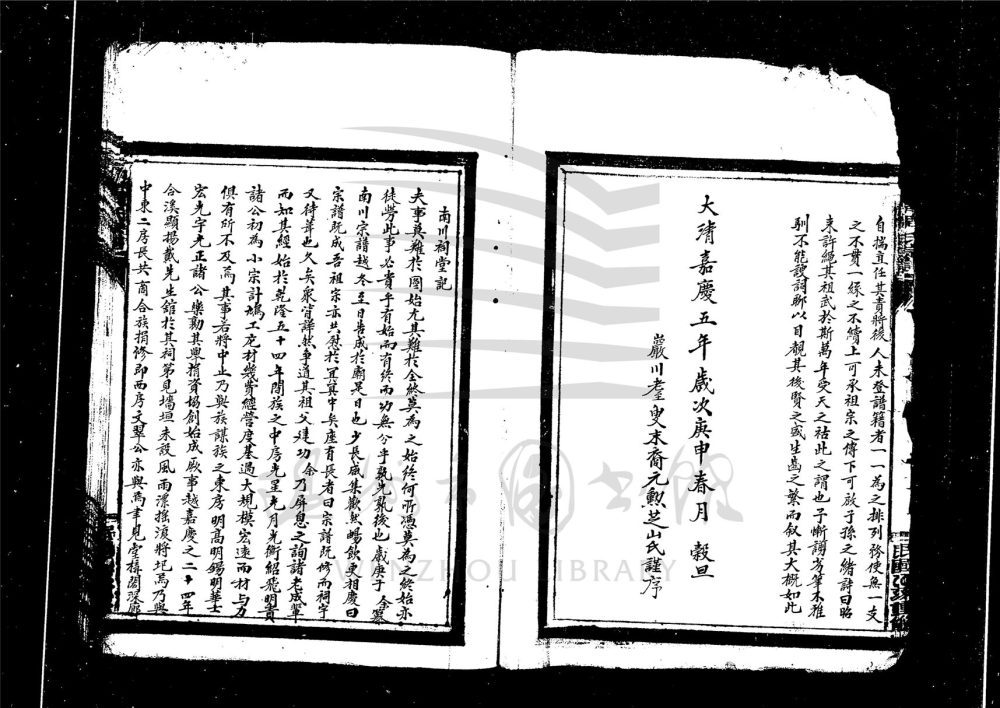 自揣宜任其責將後人未登譜籍者一一為之排列務使無一支
之不貫一線之不續上可承祖宗之傳下可啟子孫之緒詩曰昭
來許繩其祖武於斯萬年受天之祜此之謂也予慚謭劣筆不雅
馴不能諛詞聊以目覩其後賢之盛生齒之繁而敘其大概如此
大清嘉慶五年歲次庚申春月 穀旦
巖川耄叟末裔元勲芝山氏謹序
南川祠堂記
夫事莫難於圖始尤其難於全然莫為之始終何所憑莫為之終始亦
徒勞此事必貴乎有始而有終而功無分乎孰先孰後也歲庚子余纂
南川宗譜越冬至日告成於廟是日也少長咸集歡然暢飲更相慶曰
宗譜既成吾祖宗亦共慰於冥冥中矣座有長者曰宗譜既修而祠宇
又待葺也久矣衆皆譁然爭道其祖父建功余乃屏息之詢諸老成輩
而知其經始於乾隆五十四年間族之中房光星光月光衡紹飛明貴
諸公初為小宗計鳩工庀材幾費經營度基過大規模宏遠而材与力
俱有所不及焉其事若將中止乃與族謀族之東房明高明錫明華士
宏光宇光正諸公樂勷其舉捐資協創始成厥事越嘉慶之二十四年
合溪顯揚戴先生舘於其祠第見墻垣未設風雨漂搖浸將圮焉乃與
中東二房長共商合族捐修即西房文翠公亦與焉聿見堂構閎深廊
WENZHOU LIBRARY